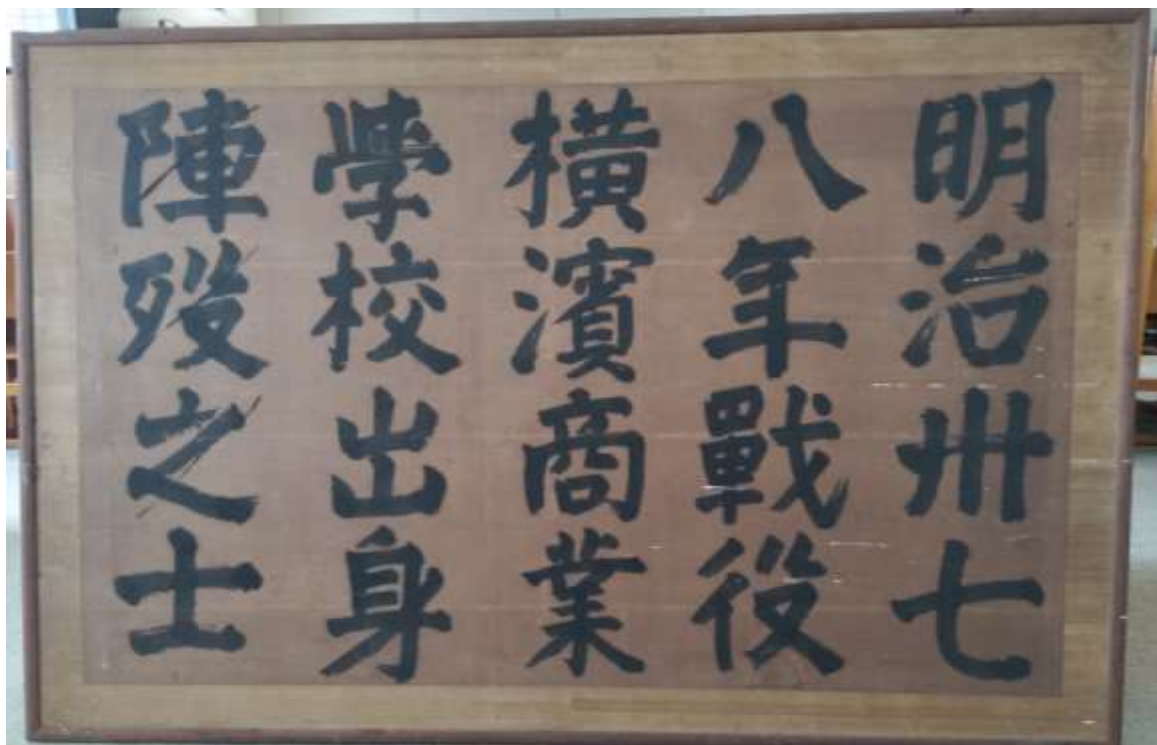 明治卅七
八年戰役
橫濱商業
學校出身
陣歿之士